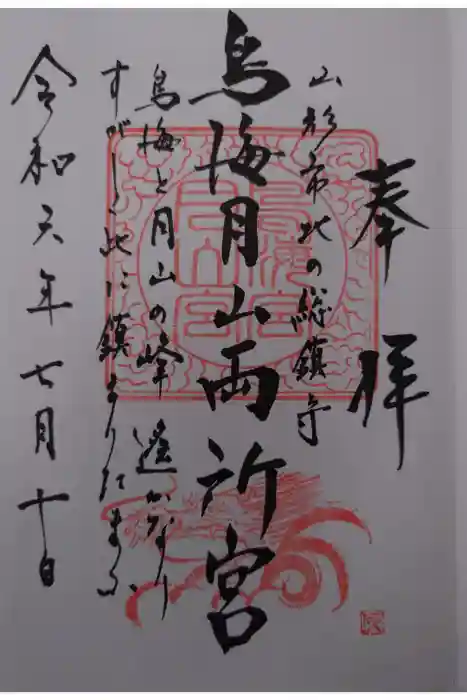 奉拝
山形市北の総鎮守
鳥海月山両所宮
鳥海と月山の峰 遥かなり
すがしく此に鎮まりたまふ
令和六年七月十日